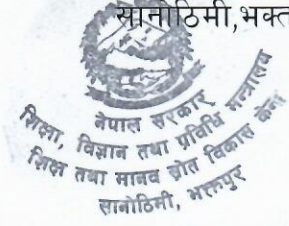 सानोठिमी,भक्त
नेपाल सरकार
शिक्षा, विज्ञान तथा प्रविधि मन्त्रालय
शिक्षा तथा मानव स्रोत विकास केन्द्र
सानोठिमी, भक्तपुर